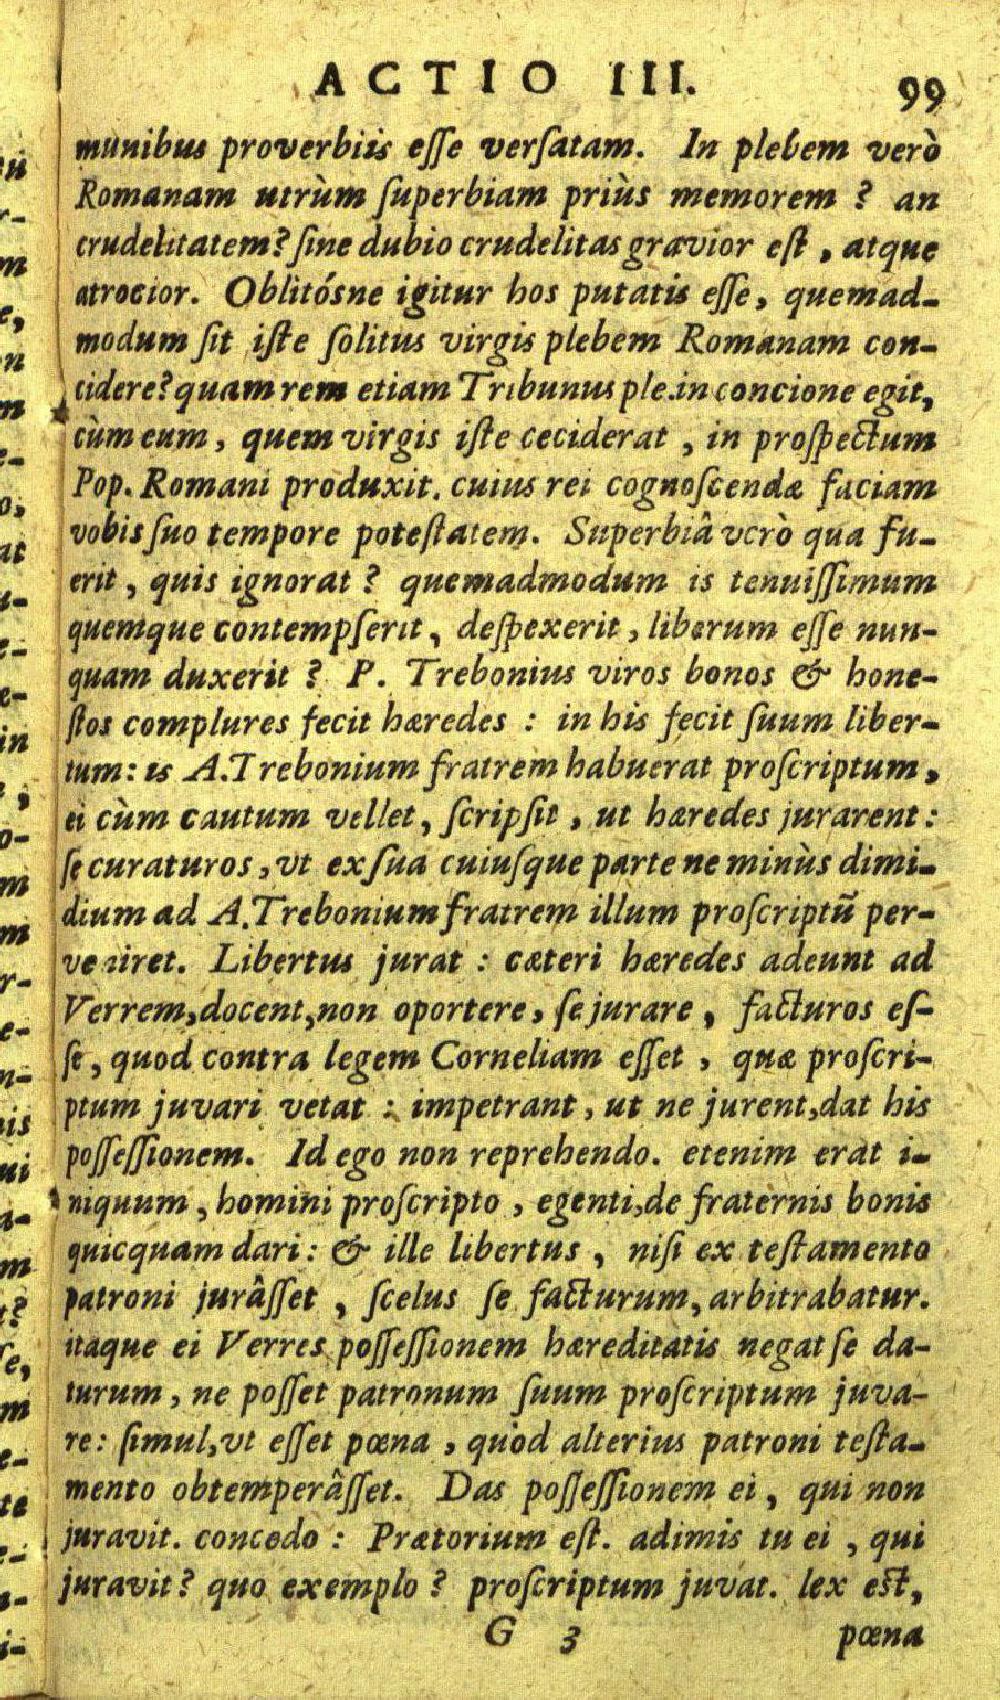 ACTIO III. 99
munibus proverbiis eſſe verſatam. In plebem verò
Romanam utrùm ſuperbiam priùs memorem ? an
crudelitatem? ſine dubio crudelitas gravior eſt , atque
atrocior. Oblitósne igitur hos putatis eſſe, quemad-
modum ſit iſte ſolitus virgis plebem Romanam con-
cidere? quam rem etiam Tribunus ple. in concione egit,
cùm eum , quem virgis iſte ceciderat , in proſpectum
Pop. Romani produxit. cuius rei cognoſcendæ faciam
vobis ſuo tempore poteſtatem. Superbiâ verò qua fu-
erit , quis ignorat ? quemadmodum is tenuiſſimum
quemque contempſerit, deſpexerit , liberum eſſe nun-
quam duxerit ? P. Trebonius viros bonos & hone-
ſtos complures fecit hæredes : in his fecit ſuum liber-
tum: is A.Trebonium fratrem habuerat proſcriptum,
ei cùm cautum vellet, ſcripſit , ut hæredes jurarent :
ſe curaturos , vt ex ſua cuiuſque parte ne minùs dimi-
dium ad A.Trebonium fratrem illum proſcriptū per-
veniret. Libertus jurat : cæteri hæredes adeunt ad
Verrem, docent, non oportere, ſe jurare , facturos eſ-
ſe, quod contra legem Corneliam eſſet , quæ proſcri-
ptum juvari vetat : impetrant, ut ne jurent, dat his
poſſeſſionem. Id ego non reprehendo. etenim erat i-
niquum , homini proſcripto , egenti, de fraternis bonis
quicquam dari : & ille libertus , niſi ex teſtamento
patroni jurâſſet , ſcelus ſe facturum, arbitrabatur.
itaque ei Verres poſſeſſionem hæreditatis negat ſe da-
turum , ne poſſet patronum ſuum proſcriptum juva-
re: ſimul, vt eſſet pœna , quòd alterius patroni teſta-
mento obtemperâſſet. Das poſſeſſionem ei, qui non
juravit. concedo : Prætorium eſt. adimis tu ei , qui
juravit? quo exemplo ? proſcriptum juvat. lex eſt,
G 3 pœna